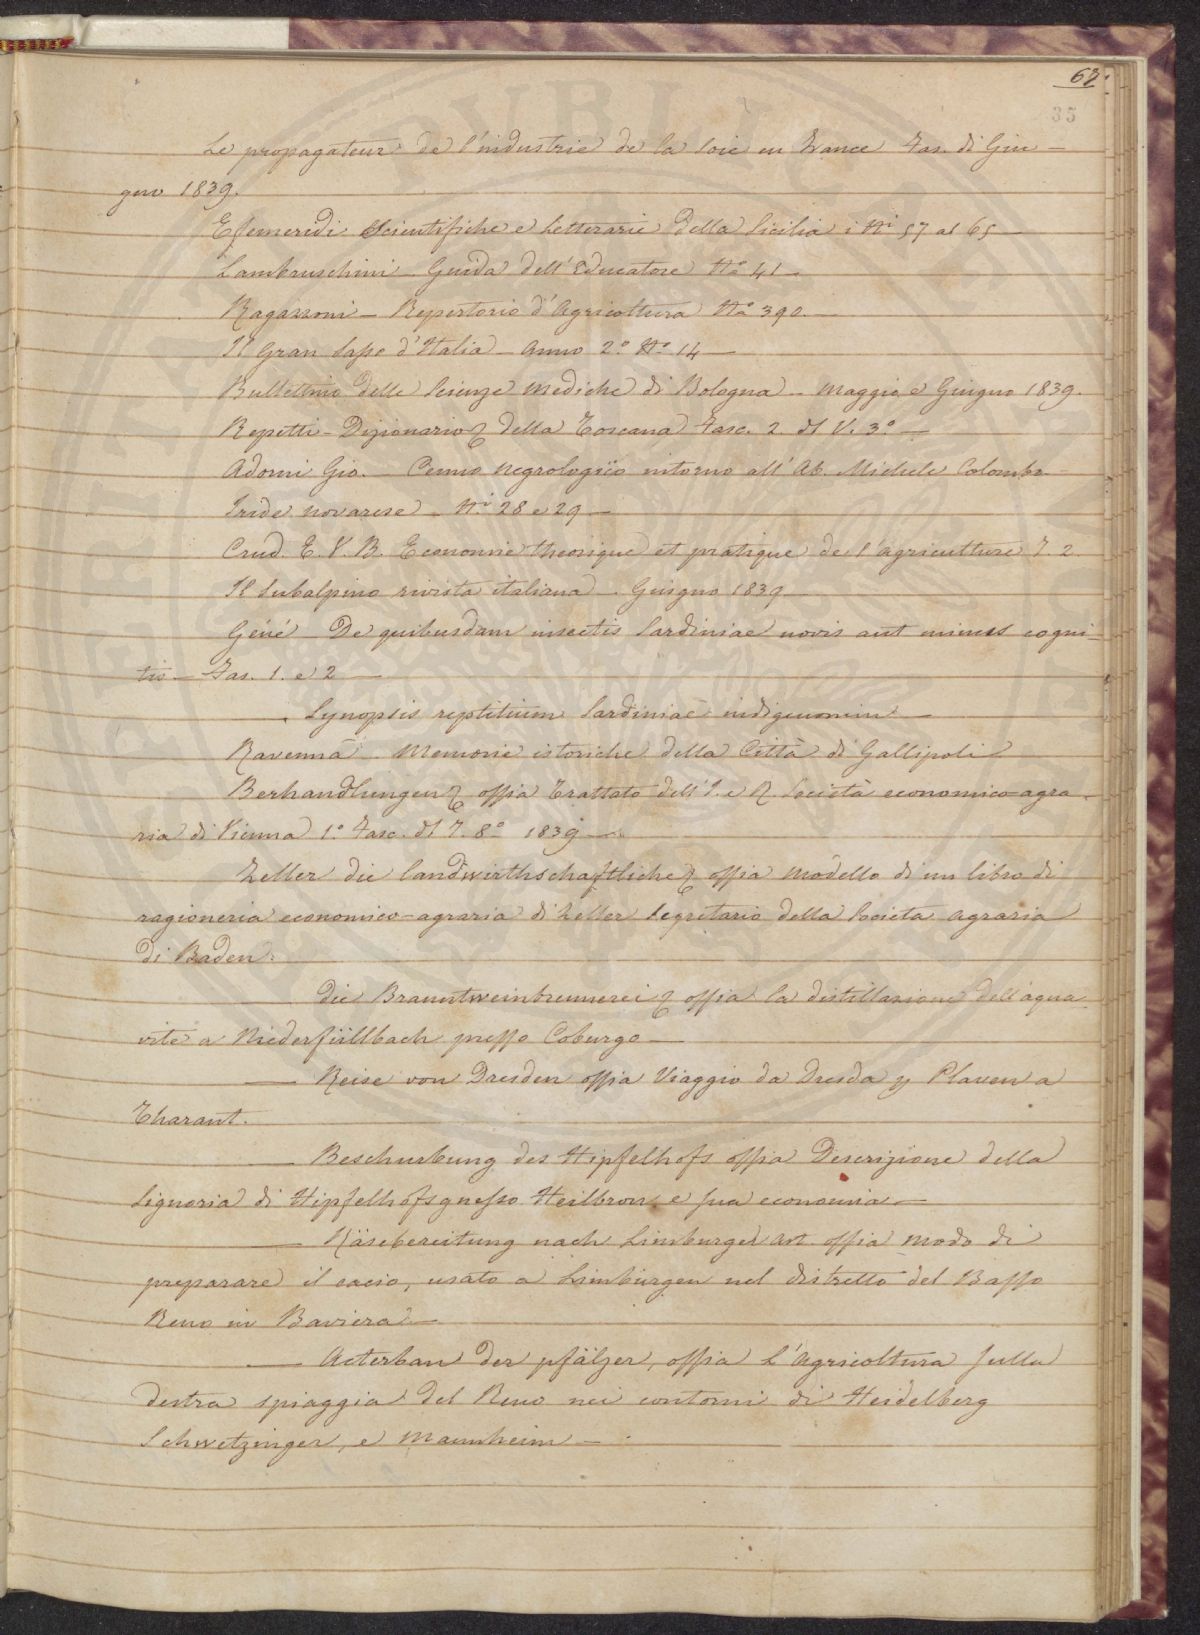 67.
35
Le propagateur de l'industrie de la Soie en France Fas. di Giu-
gno 1839.
Efemeridi Scientifiche e Letterarie della Sicilia i Ni 57 al 65 —
Lambruschini – Guida dell'Educatore No 41 —
Ragazzoni – Repertorio d'Agricoltura No 390. —
Il Gran Sasso d'Italia – Anno 2.o No 14 —
Bullettino delle Scienze Mediche di Bologna – Maggio e Giugno 1839.
Repetti – Dizionario della Toscana Fasc. 2 del V. 3o —
Adorni Gio. – Cenno negrologico intorno all'Ab. Michele Colombo
Iride novarese – Ni 28 e 29 —
Crud. E. V. B. Economie theorique et pratique de l'agriculture T. 2.
Il Subalpino rivista italiana – Giugno 1839 —
Géné – De quibusdam insectis Sardiniae novis aut minus cogni-
tis – Fas. 1. e 2 —
Synopsis reptilium Sardiniae indigenorum —
Ravenna – Memorie istoriche della Città di Gallipoli
Berhandlungen ossia Trattato dell'I. e R. Società economico-agra-
ria di Vienna 1o Fasc. del T. 8o 1839 —
Zeller die landwirthschaftliche ossia modello di un libro di
ragioneria economico-agraria di Zeller Segretario della Società agraria
di Baden.
— die Branntweinbrennerei ossia la distillazione dell'aqua
vite a Niederfüllbach presso Coburgo —
— Reise von Dresden ossia Viaggio da Dresda p Plauen a
Tharant.
— Beschurbung des Hipfelhofs ossia Descrizione della
Signoria di Hipfelhofs presso Heilbron e sua economia —
— Käsebereitung nach Limburger Art ossia modo di
preparare il cacio, usato a Limbürgen nel distretto del Basso
Reno in Baviera —
— Acterbau der pfälzer, ossia L'Agricoltura sulla
destra spiaggia del Reno nei contorni di Heidelberg
Schwetzinger, e Mannheim —